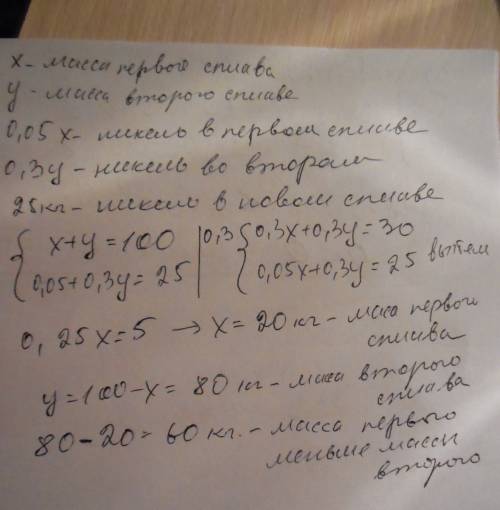 x - масса первого сплава
y - масса второго сплаве
0,05x - никель в первом сплаве
0,3y - никель во втором
25кг - никель в новом сплаве
{ x+y=100 | 0,3 { 0,3x+0,3y=30
{ 0,05+0,3y=25 | { 0,05x+0,3y=25 вычтем
0,25x=5 → x=20кг - маса первого
сплава
y=100-x=80 кг - маса второго
сплава
80-20=60 кг. - масса первого
меньше массы
второго